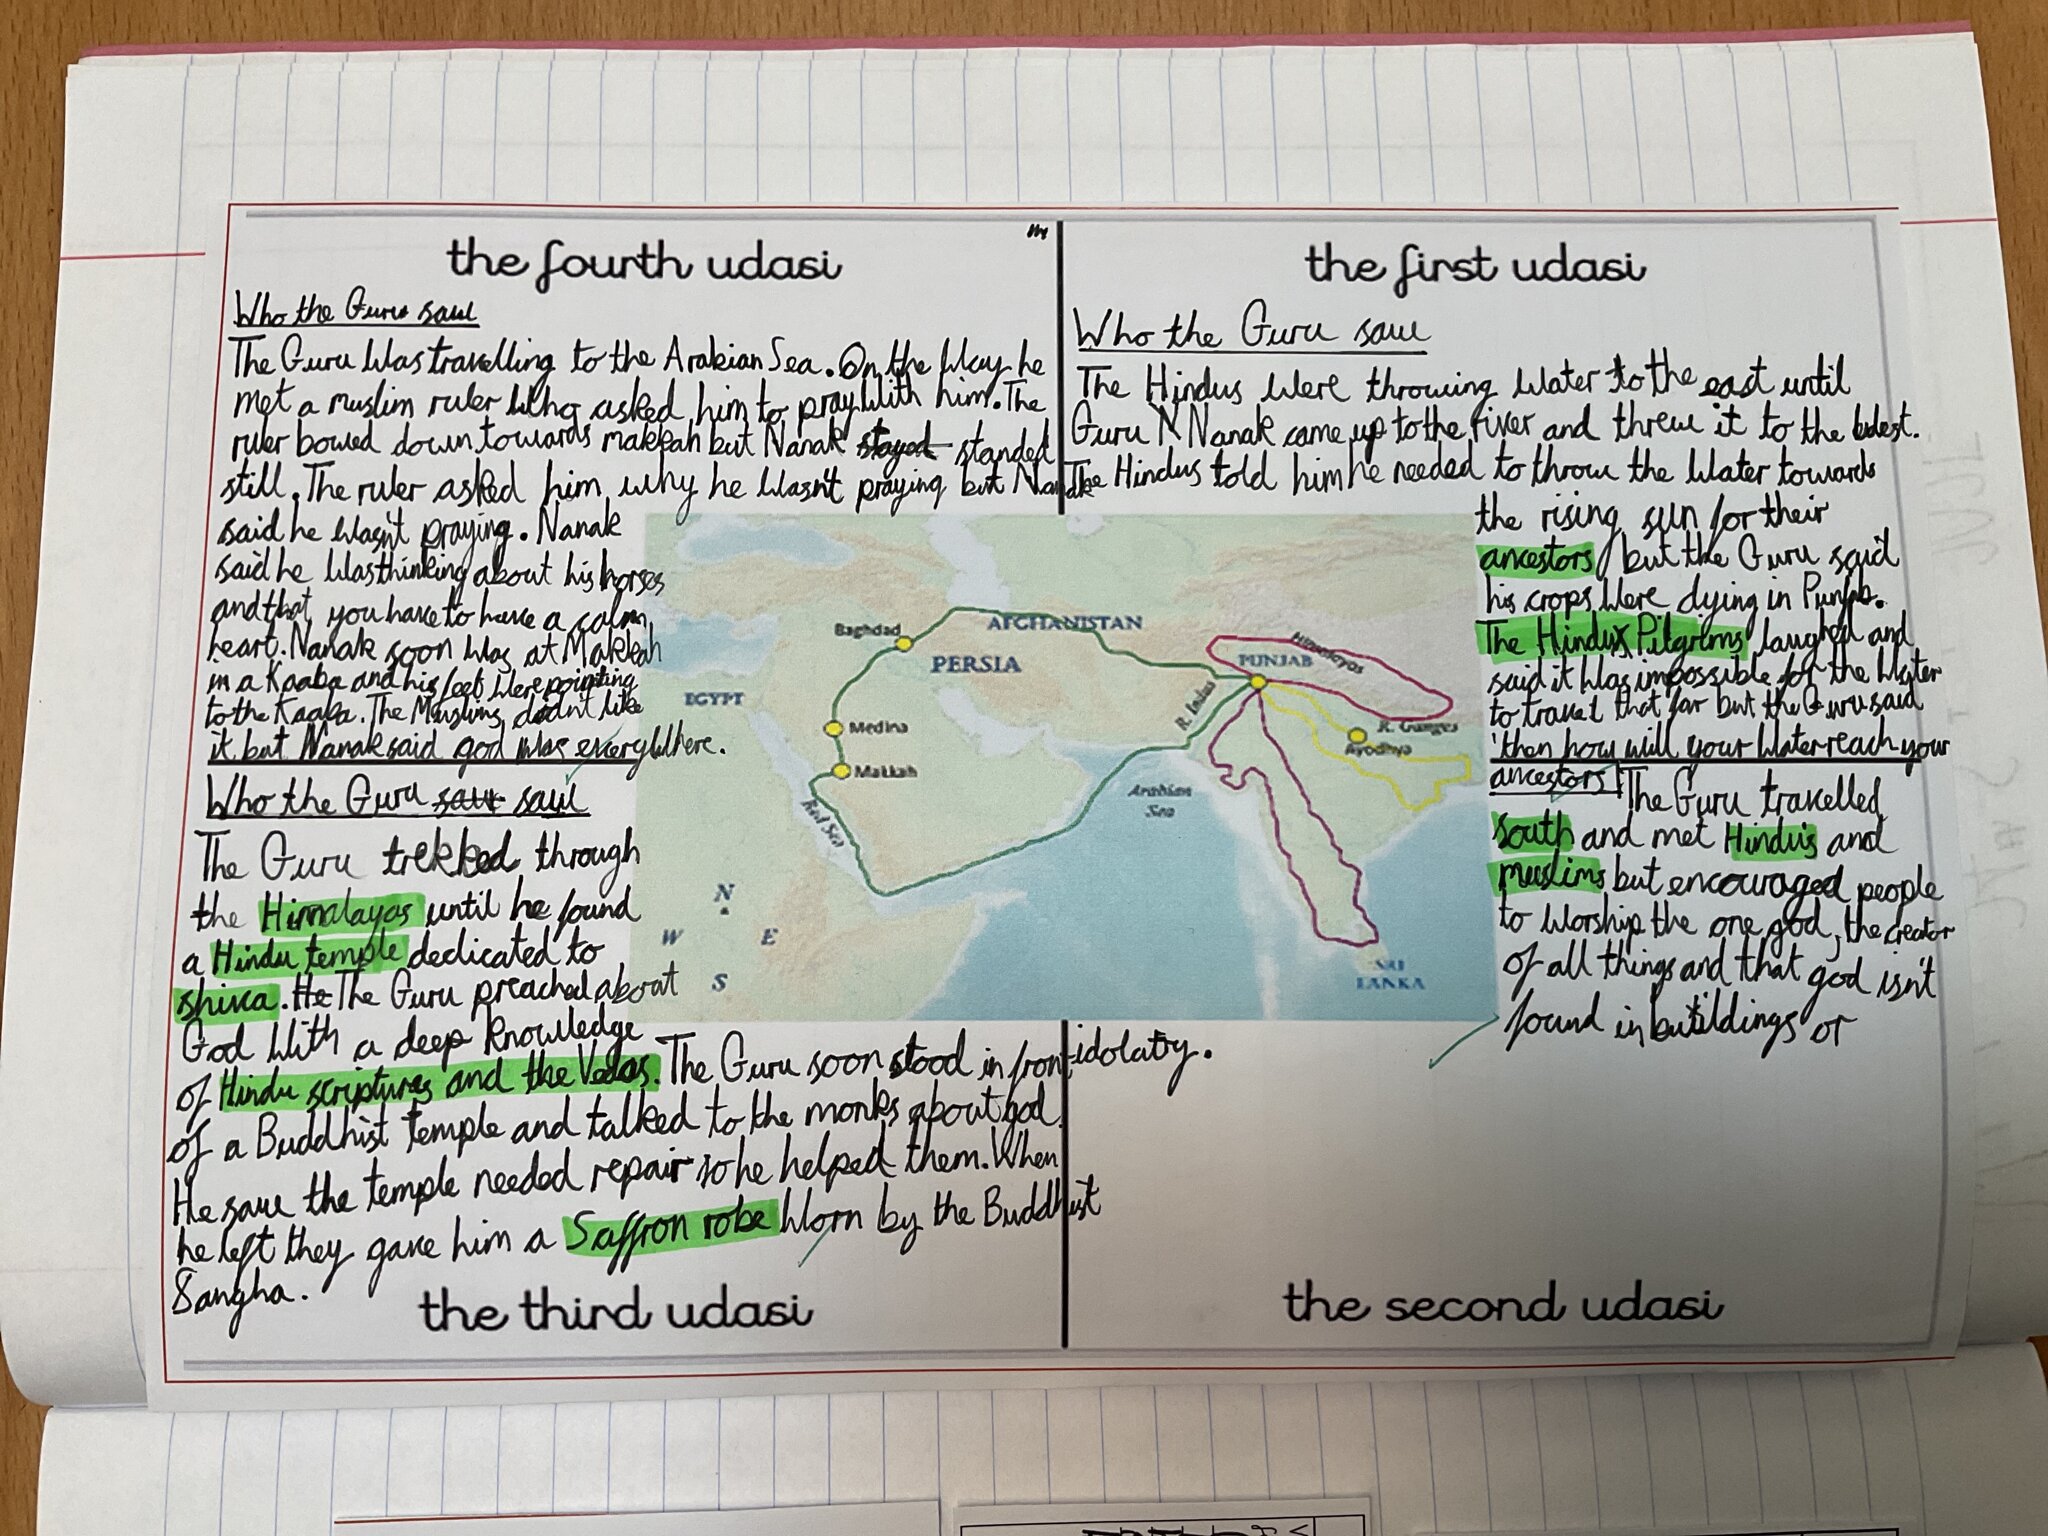 the fourth udasi
Who the Guru saw
The Guru was travelling to the Arabian Sea. On the way he
met a muslim ruler who asked him to pray with him. The
ruler bowed down towards makkah but Nanak stayed standed
still. The ruler asked him why he wasn't praying but Nanak
said he wasn't praying. Nanak
said he was thinking about his horses
and that you have to have a calm
heart. Nanak soon was at Makkah
in a Kaaba and his feet were pointing
to the Kaaba. The Muslims didn't like
it but Nanak said god was everywhere.
the first udasi
Who the Guru saw
The Hindus were throwing water to the east until
Guru N Nanak came up to the river and threw it to the west.
The Hindus told him he needed to throw the water towards
the rising sun for their
ancestors but the Guru said
his crops were dying in Punjab.
The Hindu Pilgrims laughed and
said it was impossible for the water
to travel that far but the Guru said
'then how will your water reach your
ancestors'
Baghdad
AFGHANISTAN
PERSIA
Himalayas
PUNJAB
EGYPT
R. Indus
R. Ganges
Ayodhya
Medina
Makkah
Red Sea
Arabian
Sea
N
W E
S
SRI
LANKA
Who the Guru saw saw
The Guru trekked through
the Himalayas until he found
a Hindu temple dedicated to
shiva. He The Guru preached about
God with a deep knowledge
of Hindu scriptures and the Vedas. The Guru soon stood in front
of a Buddhist temple and talked to the monks about god.
He saw the temple needed repair so he helped them. When
he left they gave him a Saffron robe worn by the Buddhist
Sangha.
the third udasi
The Guru travelled
south and met Hindu's and
muslims but encouraged people
to worship the one god, the creator
of all things and that god isn't
found in buildings or
idolatry.
the second udasi